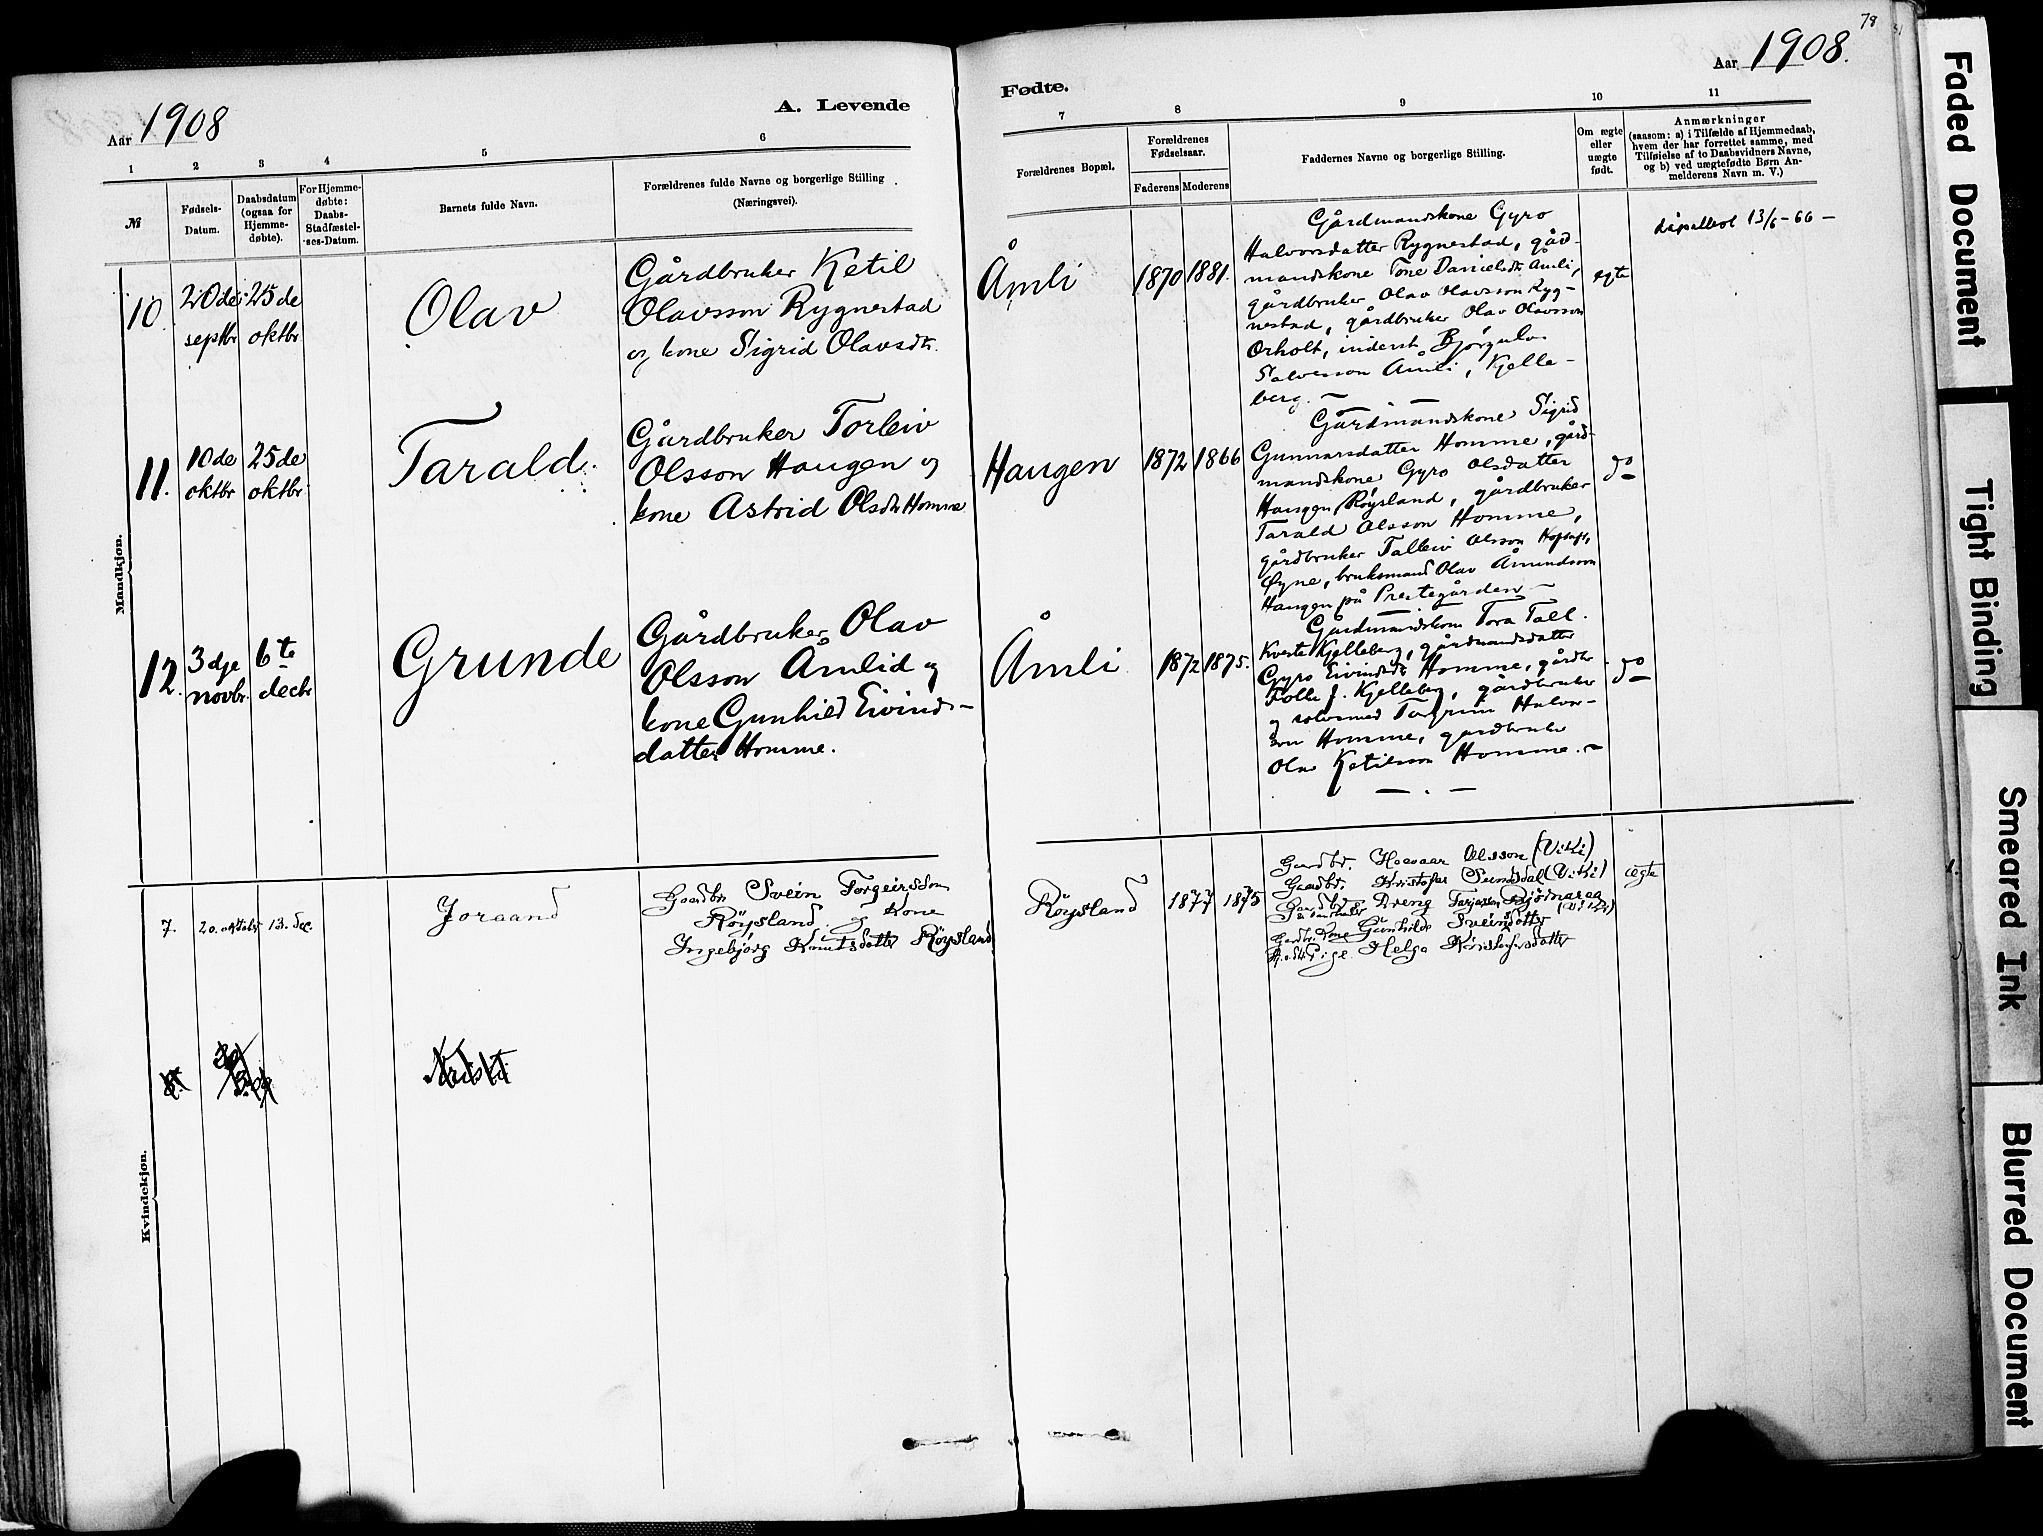 78
Aar 1908
A. Levende
Fødte.
Aar 1908.
1
2
3
4
5
6
7
8
9
10
11
№
Fødsels-
Datum.
Daabsdatum
(ogsaa for
Hjemme-
døbte).
For Hjemme-
døbte:
Daabs-
Stadfæstel-
ses-Datum.
Barnets fulde Navn.
Forældrenes fulde Navne og borgerlige Stilling
(Næringsvei).
Forældrenes Bopæl.
Forældrenes
Fødselsaar.
Faderens
Moderens
Faddernes Navne og borgerlige Stilling.
Om ægte
eller
uægte
født.
Anmærkninger
(saasom: a) i Tilfælde af Hjemmedaab,
hvem der har forrettet samme, med
Tilføielse af to Daabsvidners Navne,
og b) ved uægtefødte Børn An-
melderens Navn m. V.)
Mandkjøn.
10
20de
septbr
25de
oktbr
Olav
Gårdbruker Ketil
Olavsson Rygnestad
og kone Sigrid Olavsdtr.
Åmli
1870
1881.
Gårdmandskone Gyro
Halvorsdatter Rygnestad, gård-
mandskone Tone Danielsdtr Åmli,
gårdbruker Olav Olavsson Ryg-
nestad, gårdbruker Olav Olavsson
Orholt, inderst Bjørgulv
Salvesson Åmli, Kjelle-
berg. –
egte
13/6 - 66 –
11.
10de
oktbr
25de
oktbr
Tarald.
Gårdbruker Torleiv
Olsson Haugen og
kone Astrid Olsdtr Homme
Haugen
1872
1866
Gårdmandskone Sigrid
Gunnarsdatter Homme, gård-
mandskone Gyro Olsdatter
Haugen Røysland, gårdbruker
Tarald Olsson Homme,
gårdbruker Talleiv Olsson
Øyne, bruksmand Olav Åmundsson
Haugen på Prestegården –
do
12.
3dje
novbr.
6te
decbr
Grunde
Gårdbruker Olav
Olsson Åmlid og
kone Gunhild Eivinds-
datter Homme.
Åmli
1872
1875.
Gårdmandskone Tora Tall.
Kveste Kjelleberg, gårdmandsdatter
Gyro Eivindsdtr Homme, gårdbr
Folke J. Kjelleberg, gårdbruker
og Torgrim Halvor-
son Homme, gårdbruker
Olav Ketilsson Homme. –
do
Kvindekjøn.
7.
20. oktober
13. Dec.
Joraand
Gaardbr. Svein Torgeirsson
Røysland og Kone
Ingebjørg Knutsdatter Røysland
Røysland
1877
1875
Gaardbr. Haavaar Olsson (Viki)
Gaardbr. Kristofer Sundsdal (Viki)
Gaardbr. Dreng Tarjesson Bjørnaraa
(Viki)
Gaardbr. Kone Gunhilde Sveinsdatter
Pige Helga Kristofersdatter
ægte
8.
Faded Document
Tight Binding
Smeared Ink
Blurred Document